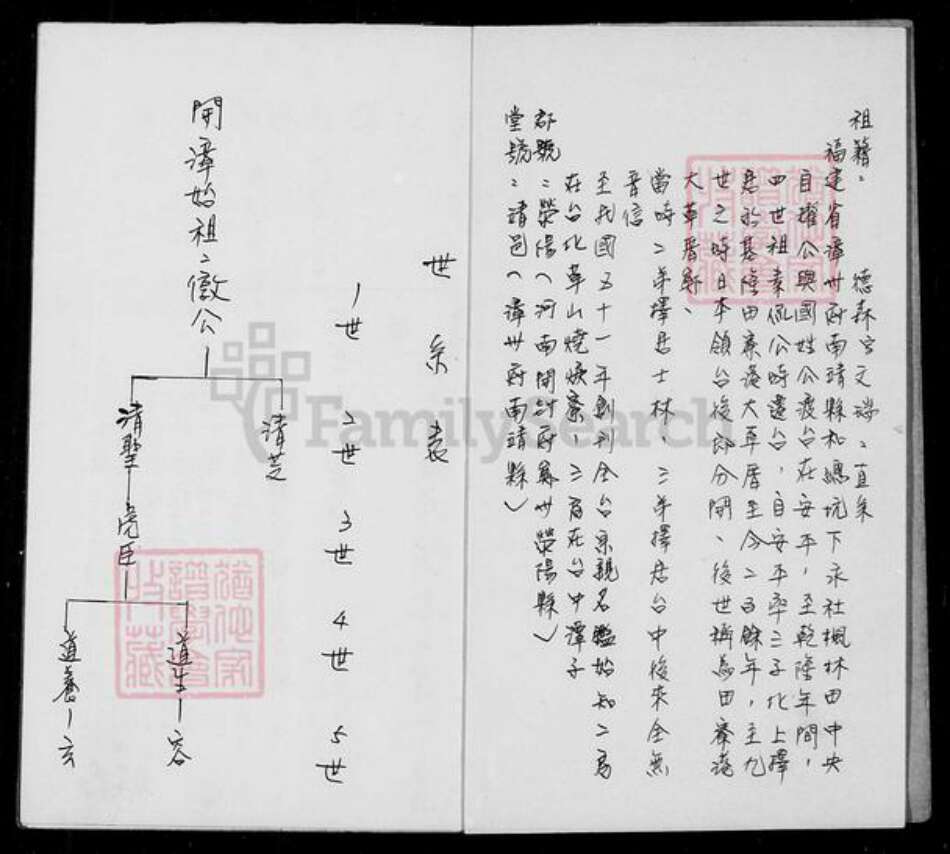 祖籍：德森字文瑞：直系
福建省漳州府南靖縣和總坑下永社楓林田中央
自擢公與國姓公渡台在安平，至乾隆年間，
四世祖素侃公時遷台，自安平率三子北上擇
居於基隆田寮港大草厝至今二百餘年，至九
世之時日本領台後即分開、後世稱為田寮港
大草厝郭、
當時二弟擇居士林、三弟擇居台中後來全無
音信
至我國五十一年創刊全台宗親名鑑始知二房
在台北草山燒焿寮，三房在台中潭子
郡號：滎陽（河南開封府鄭州滎陽縣）
堂號：靖邑（漳州府南靖縣）
世系表
1世 2世 3世 4世 5世
開漳始祖：徵公
清芝
清聖
虎臣
道生 容
道養 玄
猶他家譜學會收藏
猶他家譜學會收藏
FamilySearch